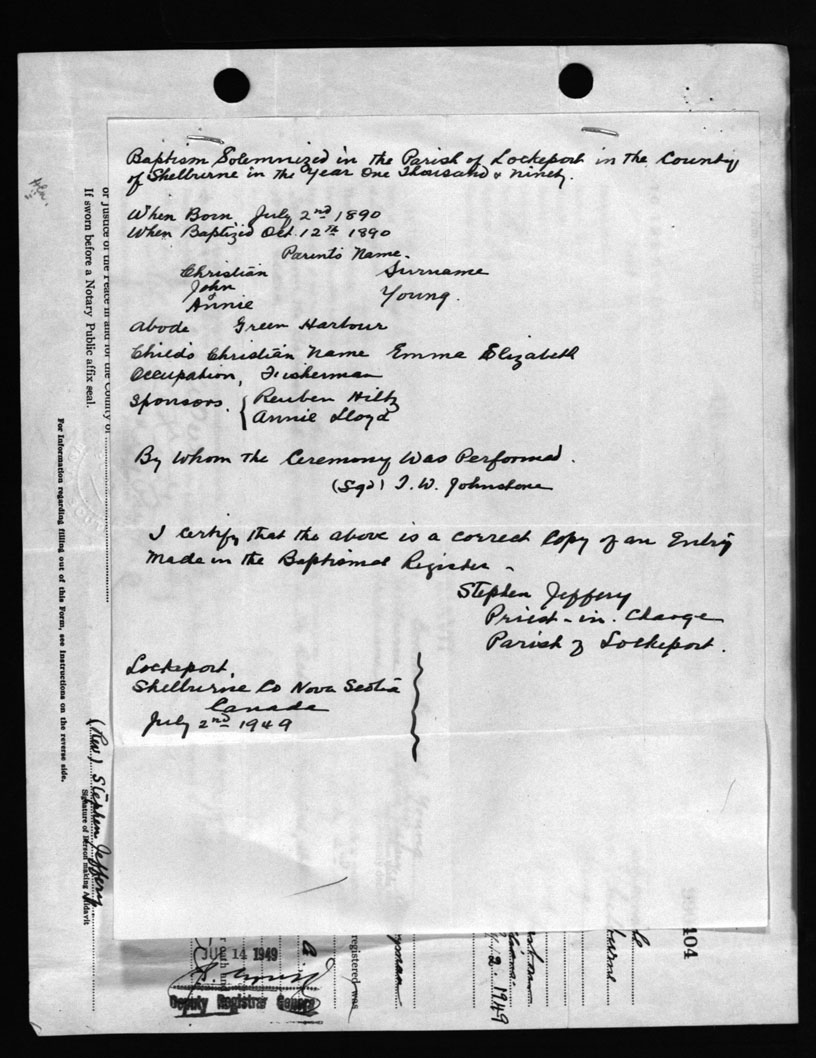 Baptism Solemnized in the Parish of Lockeport in the County
of Shelburne in the Year One Thousand & ninety.
When Born July 2nd 1890
When Baptized Oct. 12th 1890
Parents Name.
Christian Surname
John
& Young.
Annie
Abode Green Harbour
Child's Christian Name Emma Elizabeth
Occupation, Fisherman
Sponsors. { Reuben Hiltz
Annie Lloyd
By Whom the Ceremony Was Performed.
(Sgd) T. W. Johnstone
I Certify that the above is a correct Copy of an Entry
Made in the Baptismal Register -
Stephen Jeffery
Priest-in-Charge
Parish of Lockeport.
Lockeport,
Shelburne Co Nova Scotia
Canada
July 2nd 1949
or Justice of the Peace in and for the County of
If sworn before a Notary Public affix seal.
For Information regarding filling out of this Form, see Instructions on the reverse side.
(Rev.) Stephen Jeffery
Signature of Person making Affidavit
14 1949
Deputy Registrar General
registered was
2. 1949
104